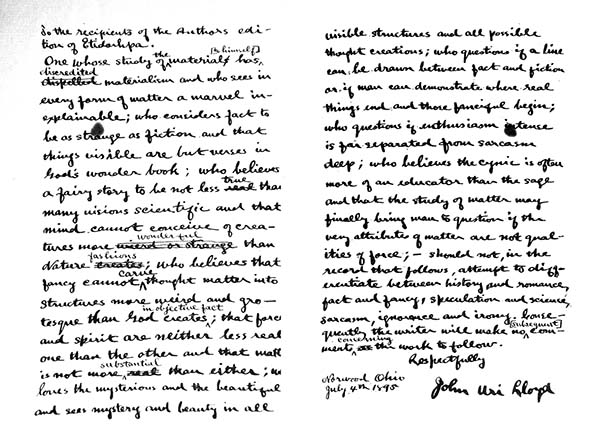 To the recipients of the Authors edi-
tion of Etidorhpa.
One whose study of the materials has, [to himself]
discredited dispelled materialism and who sees in
every form of matter a marvel in-
explainable; who considers fact to
be as strange as fiction and that
things visible are but verses in
God's wonder book; who believes
a fairy story to be not less real true than
many visions scientific and that
mind cannot conceive of crea-
tures more weird or strange wonderful than
Nature creates fashions; who believes that
fancy cannot carve thought matter into
structures more weird and gro-
tesque than God creates in objective fact; that force
and spirit are neither less real
one than the other and that matt
is not more real substantial than either; w
loves the mysterious and the beautiful
and sees mystery and beauty in all
visible structures and all possible
thought creations; who questions if a line
can be drawn between fact and fiction
or if man can demonstrate where real
things end and those fanciful begin;
who questions if enthusiasm intense
is far separated from sarcasm
deep; who believes the cynic is often
more of an educator than the sage
and that the study of matter may
finally bring man to question if the
very attributes of matter are not qual-
ities of force; – should not, in the
record that follows, attempt to diff-
erentiate between history and romance,
fact and fancy, speculation and science,
sarcasm, ignorance and irony. Conse-
quently the writer will make no [subsequent] com-
ment, concerning the work to follow.
Respectfully
Norwood Ohio
July 4th 1895
John Uri Lloyd